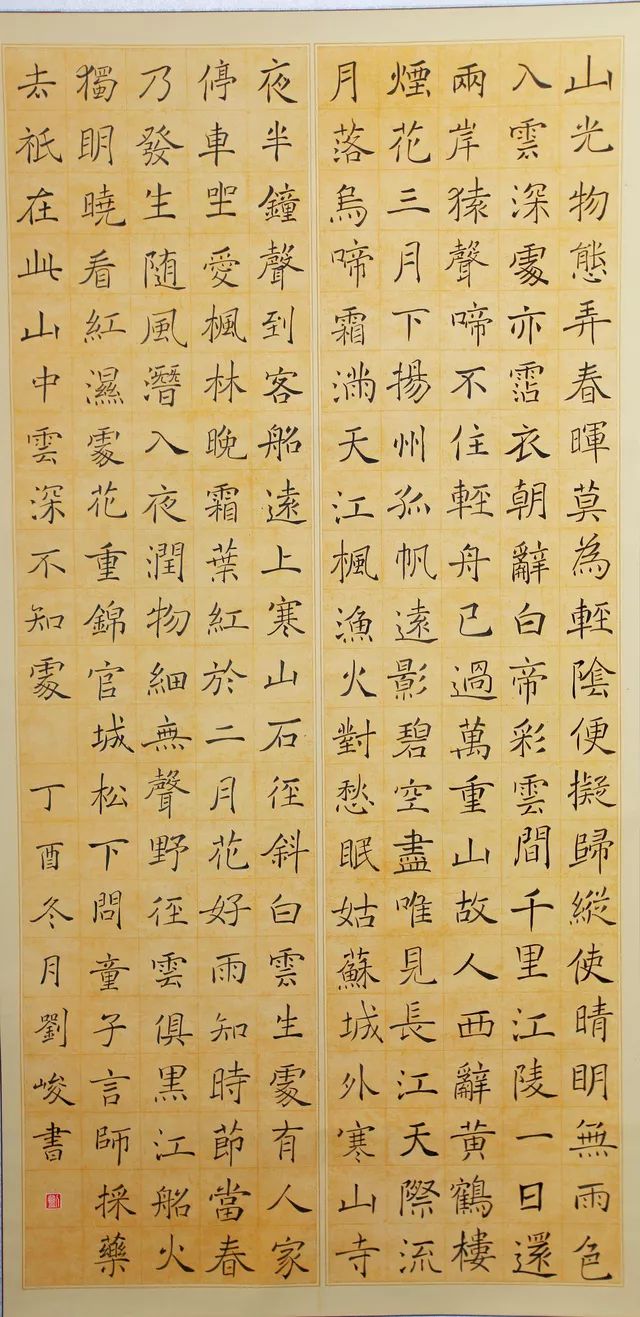 山光物態弄春暉莫為輕陰便擬歸縱使晴明無雨色
入雲深處亦霑衣朝辭白帝彩雲間千里江陵一日還
兩岸猿聲啼不住輕舟已過萬重山故人西辭黃鶴樓
煙花三月下揚州孤帆遠影碧空盡唯見長江天際流
月落烏啼霜滿天江楓漁火對愁眠姑蘇城外寒山寺
夜半鐘聲到客船遠上寒山石徑斜白雲生處有人家
停車坐愛楓林晚霜葉紅於二月花好雨知時節當春
乃發生随風潛入夜潤物細無聲野徑雲俱黑江船火
獨明曉看紅濕處花重錦官城松下問童子言師採藥
去祇在此山中雲深不知處 丁酉冬月劉峻書